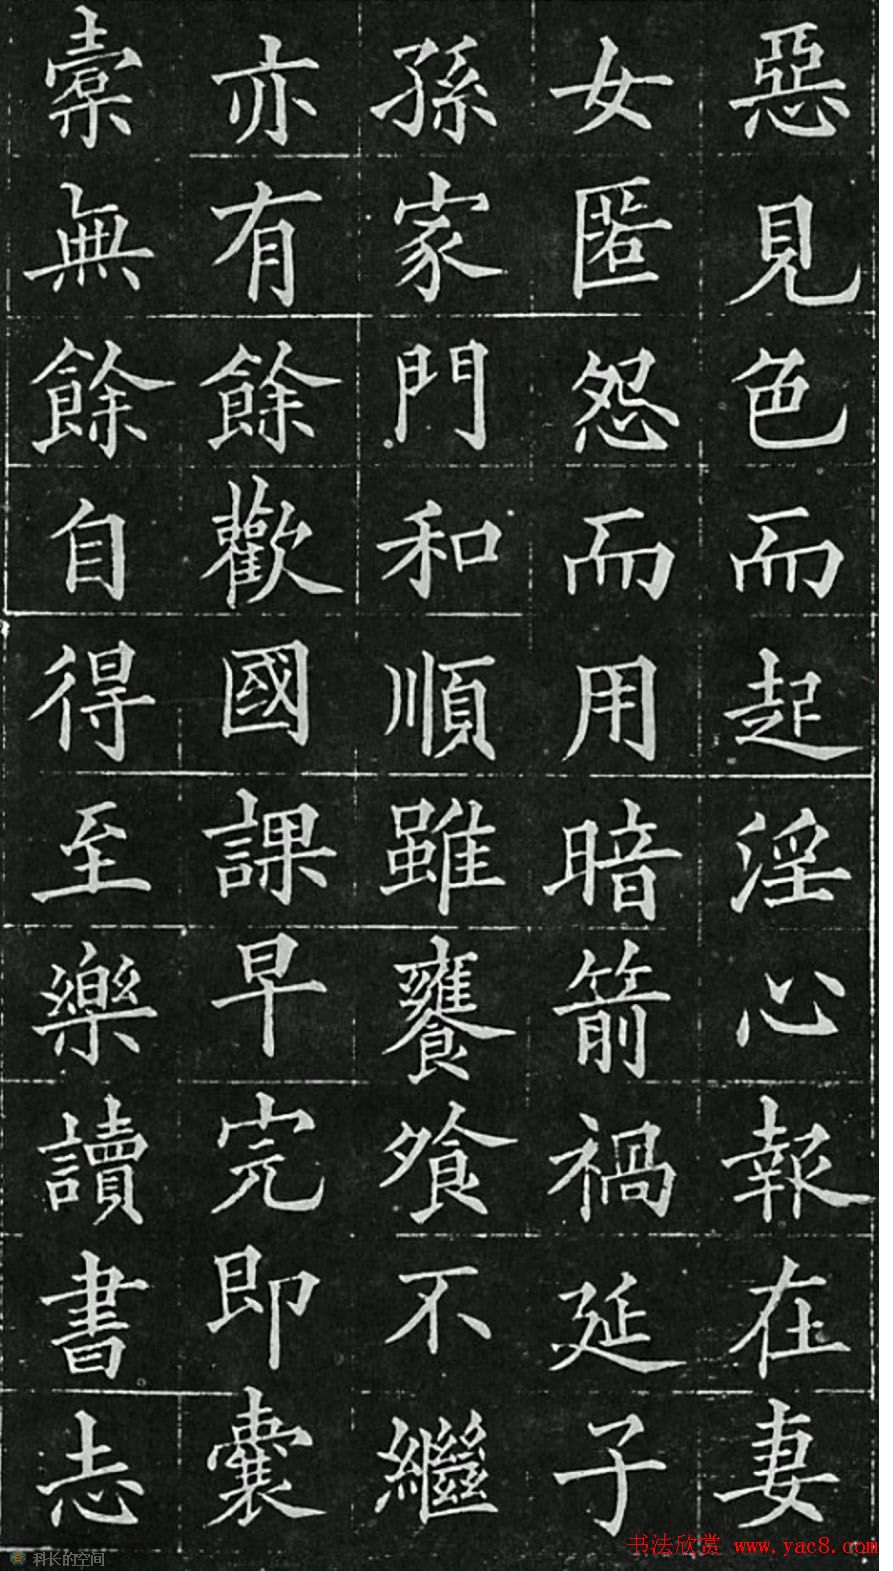 惡見色而起淫心報在妻
女匿怨而用暗箭禍延子
孫家門和順雖饔飧不繼
亦有餘歡國課早完即囊
橐無餘自得至樂讀書志
书法欣赏 www.yac8.com
科长的空间